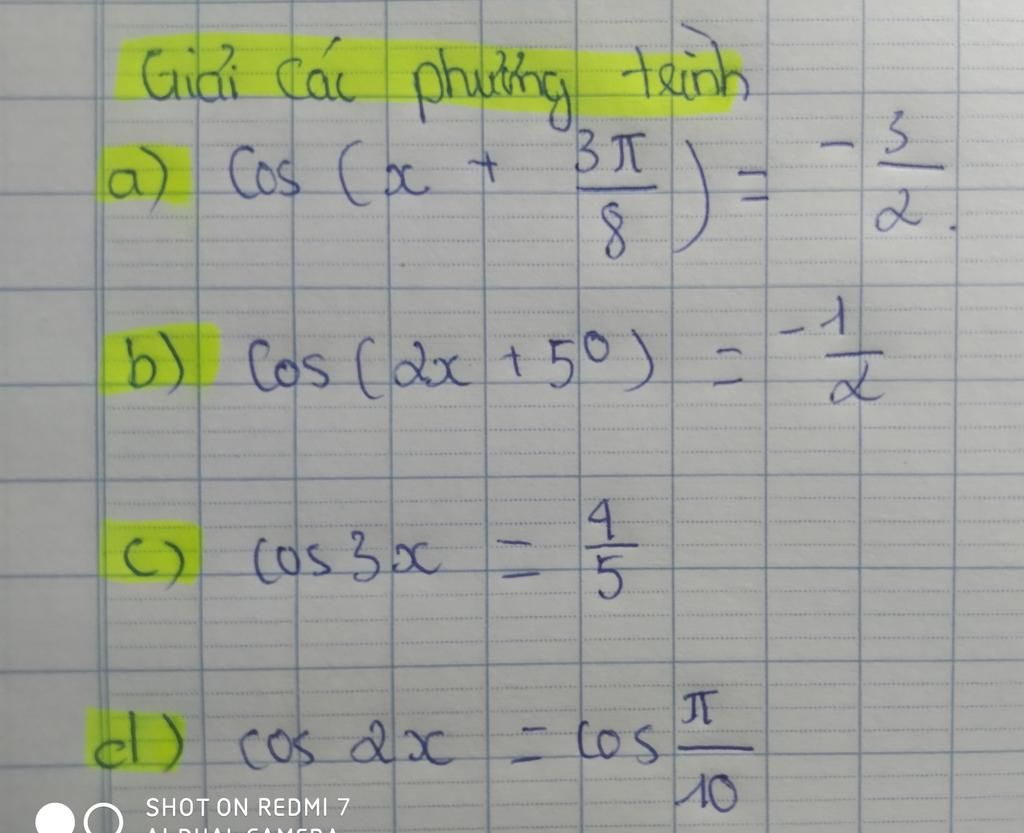 Giải các phương trình
a) cos (x + 3π/8) = - 3/2.
b) cos (2x + 5⁰) = -1/2
c) cos 3x = 4/5
d) cos 2x = cos π/10
SHOT ON REDMI 7
AI DUAL CAMERA